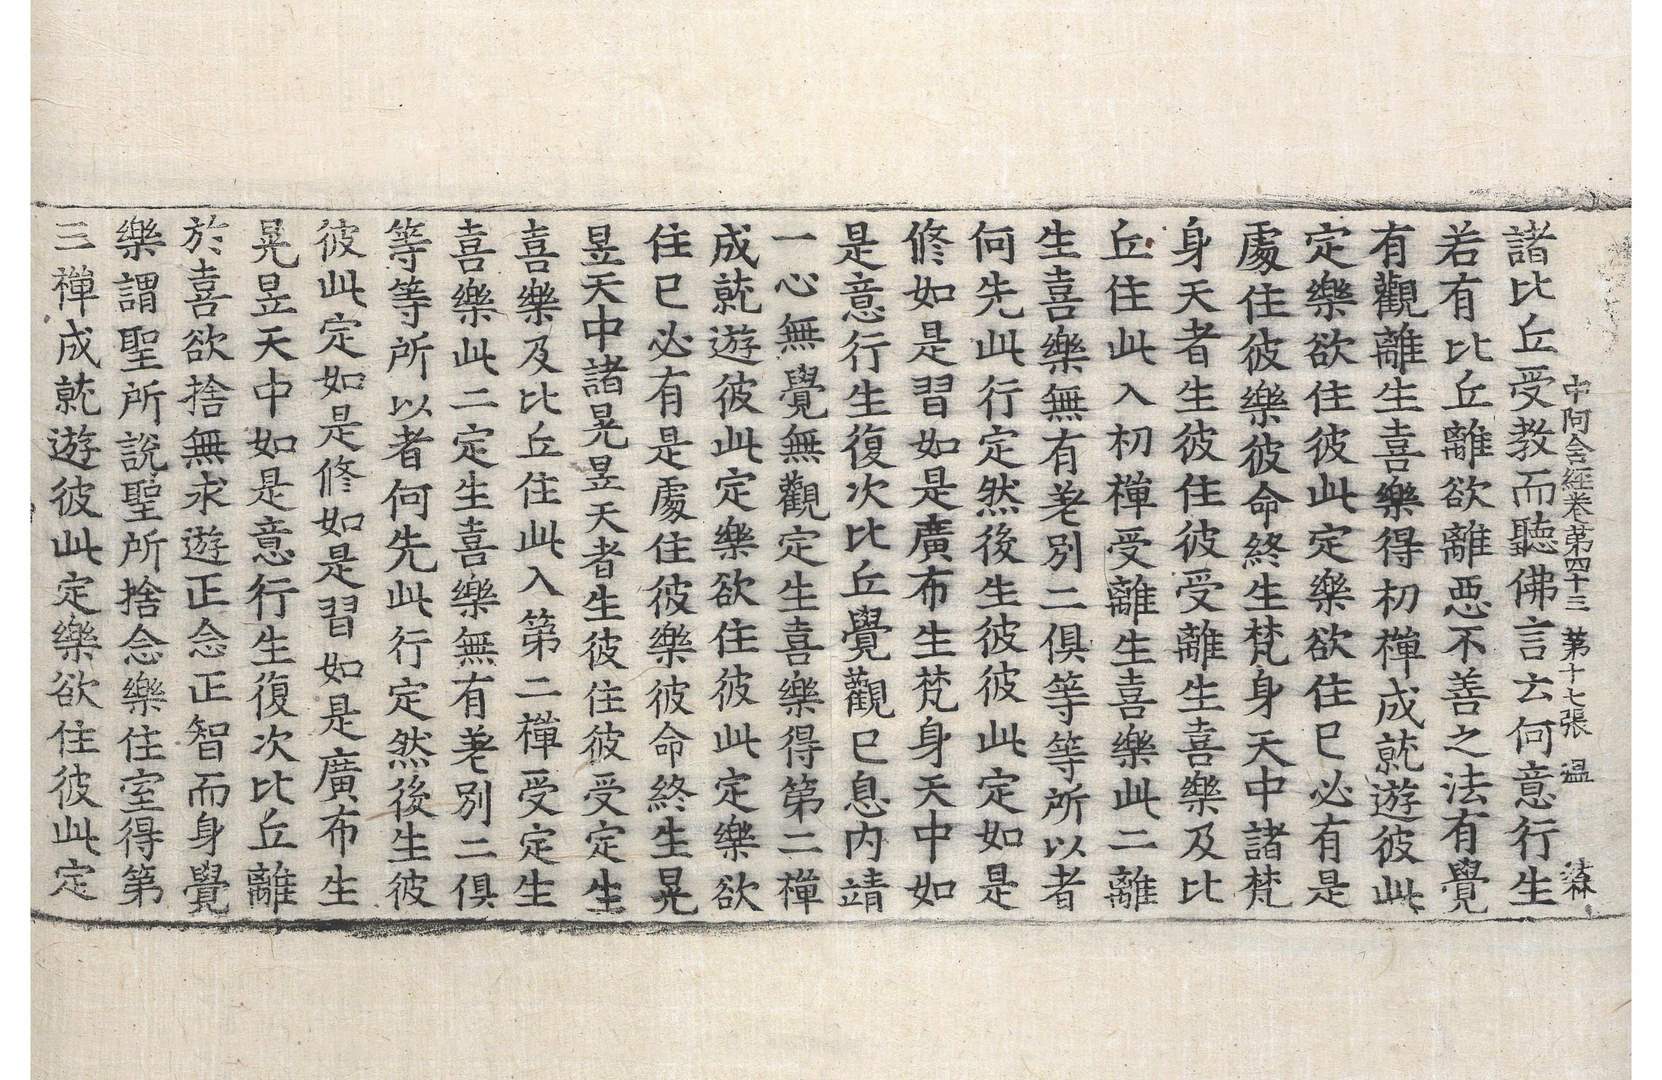 中阿含經卷第四十三　第十七張　温
諸比丘受教而聽佛言云何意行生
若有比丘離欲離惡不善之法有覺
有觀離生喜樂得初禪成就遊彼此
定樂欲住彼此定樂欲住已必有是
處住彼樂彼命終生梵身天中諸梵
身天者生彼住彼受離生喜樂及比
丘住此入初禪受離生喜樂此二離
生喜樂無有差別二俱等等所以者
何先此行定然後生彼彼此定如是
修如是習如是廣布生梵身天中如
是意行生復次比丘覺觀已息內靖
一心無覺無觀定生喜樂得第二禪
成就遊彼此定樂欲住彼此定樂欲
住已必有是處住彼樂彼命終生晃
昱天中諸晃昱天者生彼住彼受定生
喜樂及比丘住此入第二禪受定生
喜樂此二定生喜樂無有差別二俱
等等所以者何先此行定然後生彼
彼此定如是修如是習如是廣布生
晃昱天中如是意行生復次比丘離
於喜欲捨無求遊正念正智而身覺
樂謂聖所說聖所捨念樂住室得第
三禪成就遊彼此定樂欲住彼此定